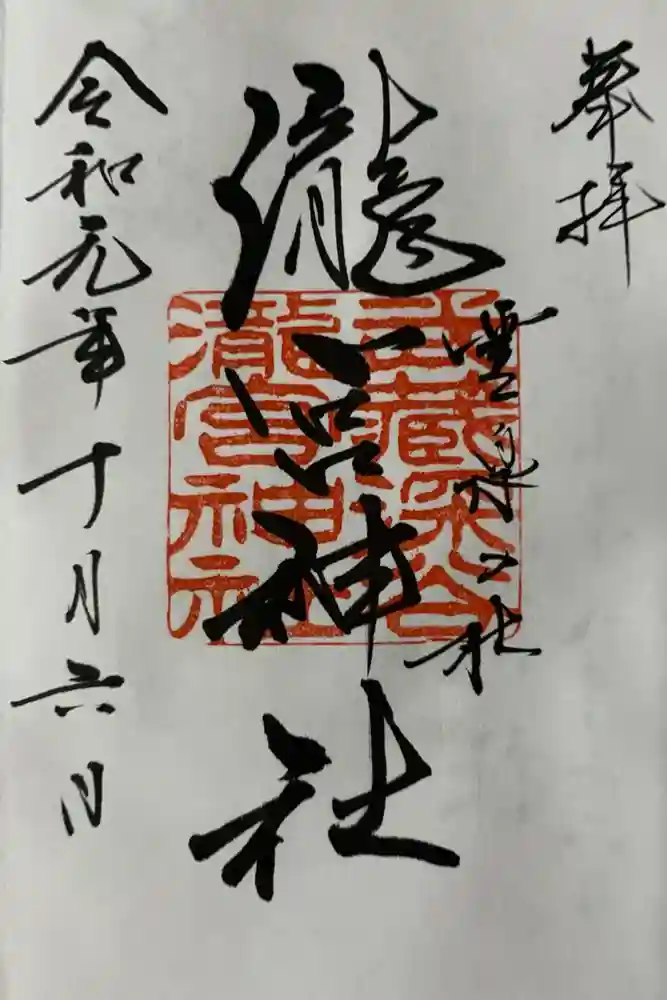 奉拝
霊泉之社
瀧宮神社
武蔵深谷
瀧宮神社
令和元年十月六日